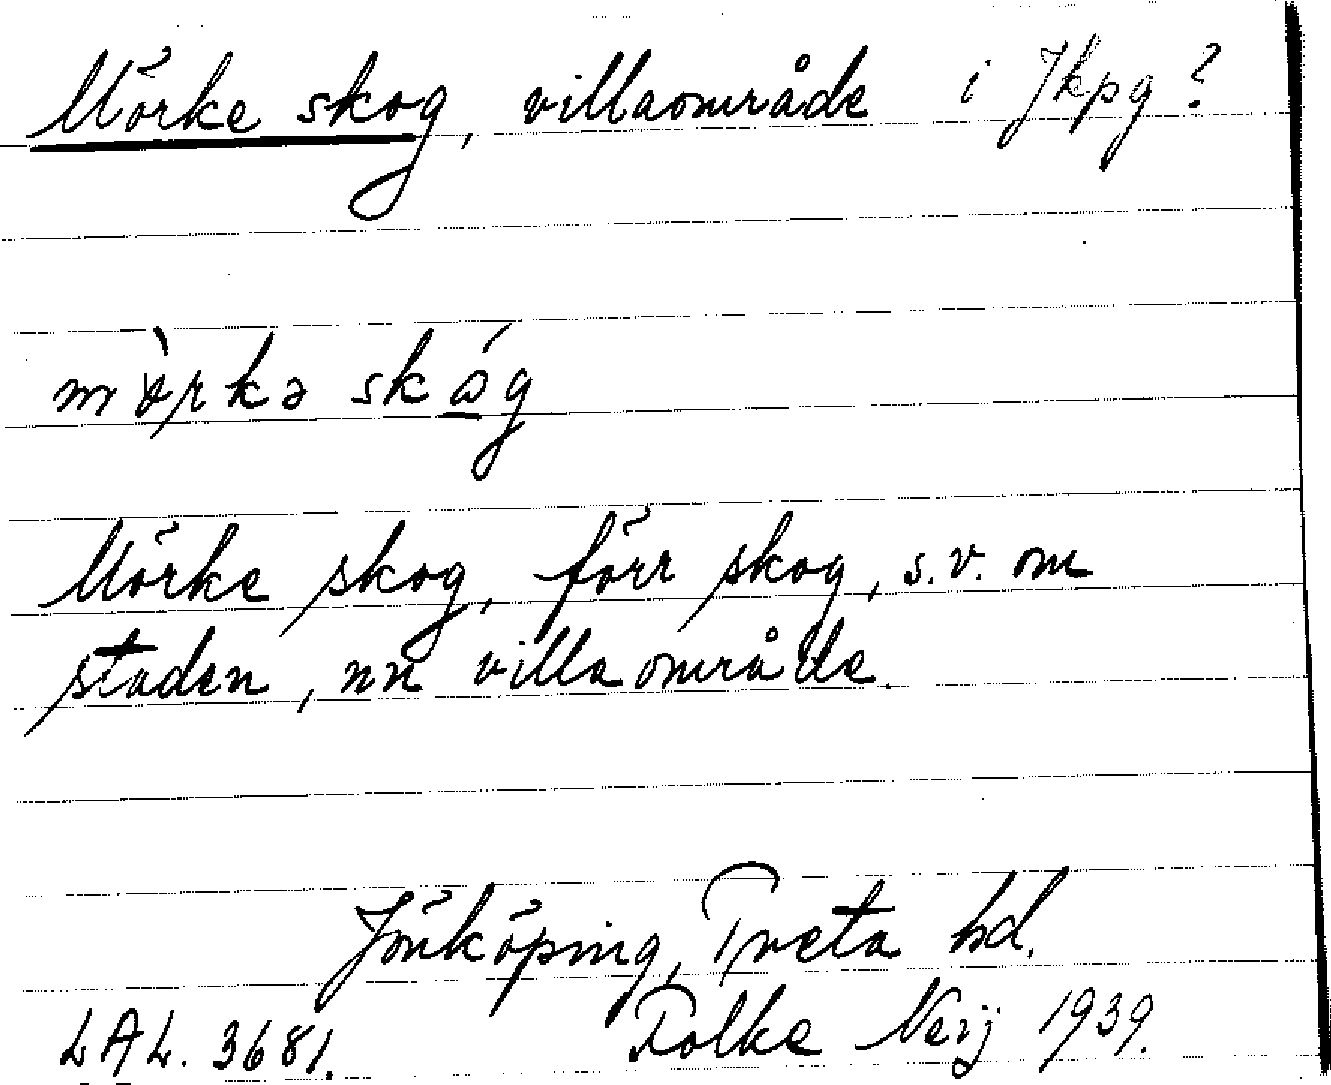 Mörke skog, villaområde i Jkpg?
mö̀rkə skóg
Mörke skog, förr skog, s.v. om
staden, nu villaområde.
Jönköping, Tveta hd.
LAL. 3681. Folke Neij 1939.